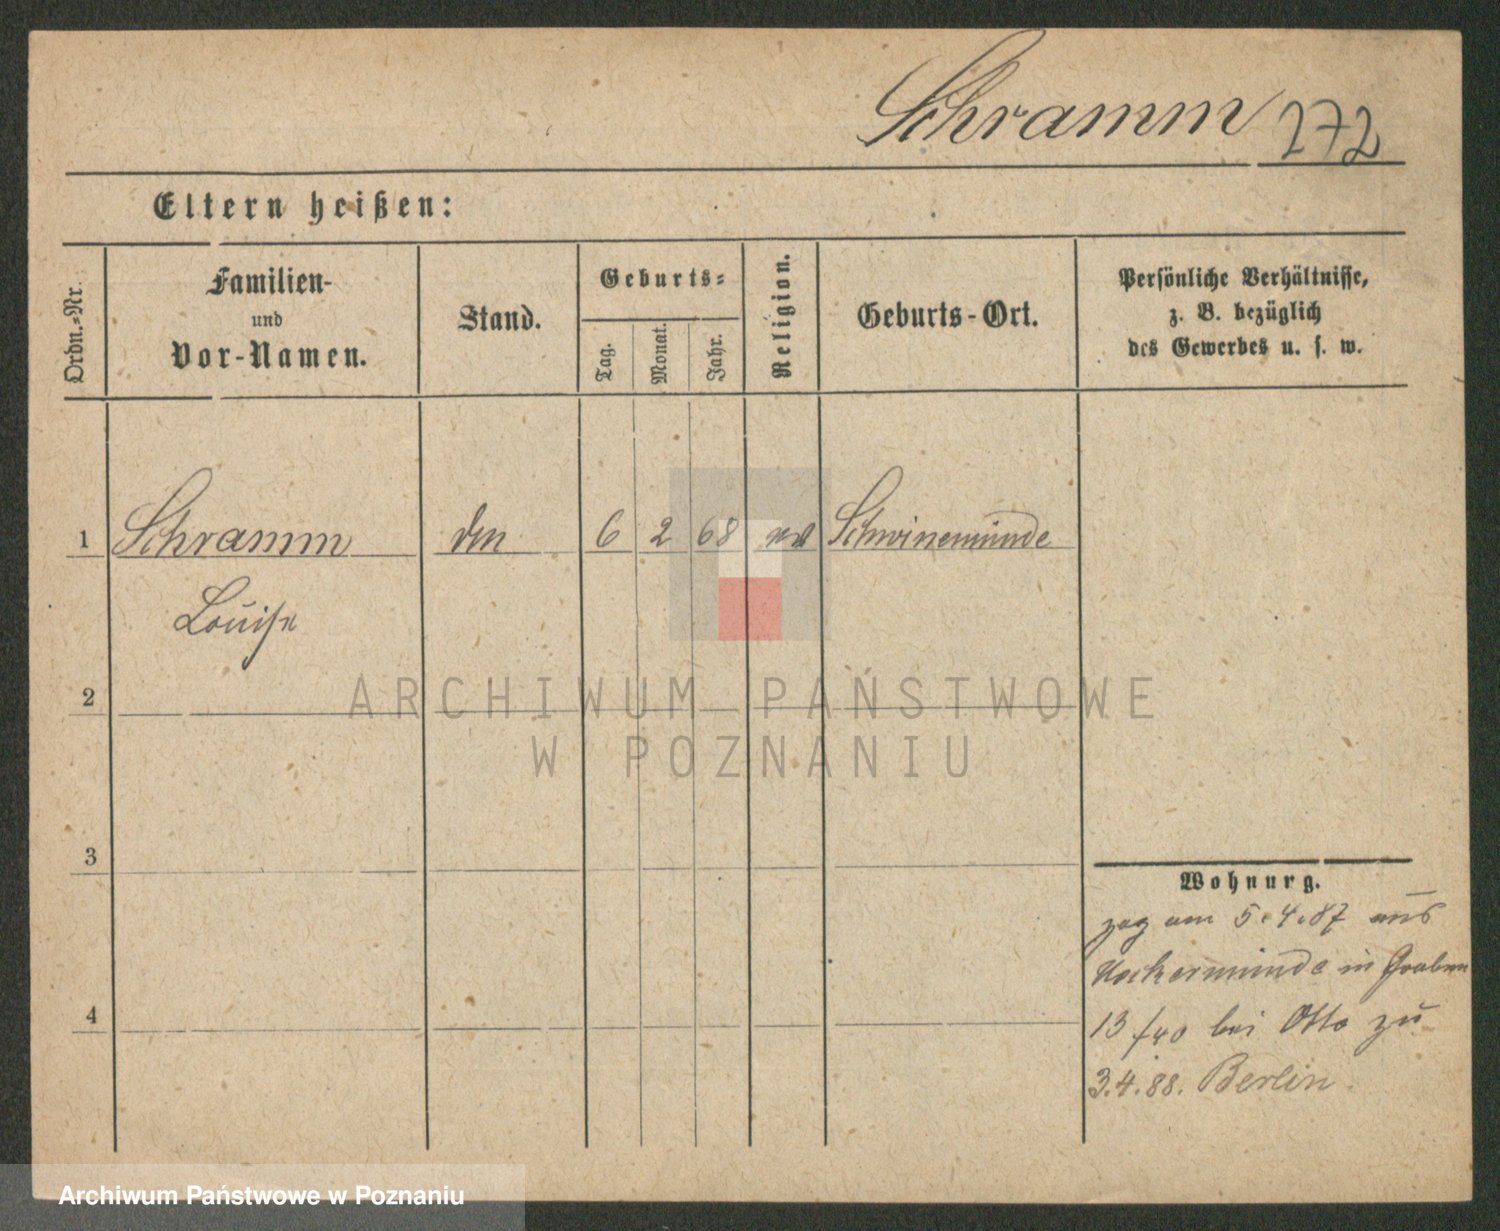 Schramm 272
Eltern heißen:
Ordn.-Nr.
Familien-
und
Vor-Namen.
Stand.
Geburts-
Tag.
Monat.
Jahr.
Religion.
Geburts-Ort.
Persönliche Verhältnisse,
z. B. bezüglich
des Gewerbes u. s. w.
1 Schramm 6 2 68 Schwinemünde
Louise
2
3
4
Wohnung.
zog am 5.4.87 aus
Uckermünde in Graben
13 bei Otto zu
3.4.88. Berlin.
ARCHIWUM PAŃSTWOWE
W POZNANIU
Archiwum Państwowe w Poznaniu